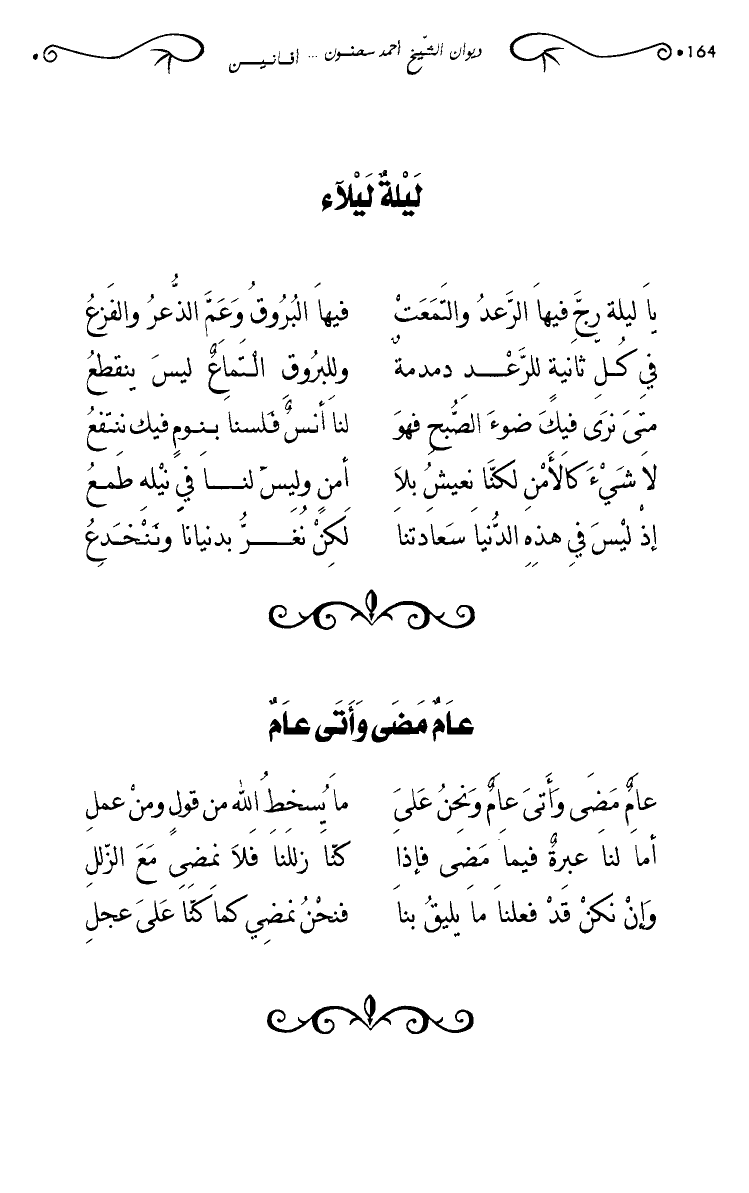 164 ديوان الشّيخ أحمد سحنون ... أفانيـــن
لَيْلةٌ لَيْلآء
ياَ ليلة رِجَّ فيهاَ الرَّعدُ والتَمَعَتْ فيهاَ البُرُوقُ وَعَمَّ الذُّعرُ والفَزعُ
في كُـلِّ ثانيةٍ للرَّعْـــد دمدمةٌ وللبرُوقِ الْـتَماعٌ ليسَ ينقطعُ
متىَ نرَى فيكَ ضوءَ الصُّبحِ فهوَ لناَ أنسٌ فَلسنا بـنـومٍ فيك ننتفعُ
لاَ شَيْءَ كالأَمْنِ لكنَّا نعيشُ بلاَ أمنٍ وليسَ لنــا فيِ نيْلهِ طمـعُ
إذْ ليْسَ فيِ هذهِ الدُّنياَ سَعادتنا لَكِنْ نُغـــرُّ بدنيانَا ونَنْخدِعُ
عاَمٌ مَضَى وَأَتَى عاَمٌ
عامٌ مَضَى وَأَتىَ عامٌ وَنحنُ عَلىَ ماَ يُسخطُ الله من قولٍ ومنْ عملِ
أماَ لناَ عبرةٌ فيماَ مَضَى فإذا كنَّا زللنا فلاَ نمضىِ مَعَ الزّللِ
وَإنْ نكنْ قدْ فعلناَ ماَ يليقُ بناَ فنحْنُ نمضِي كماَ كنَّا عَلىَ عجلِ